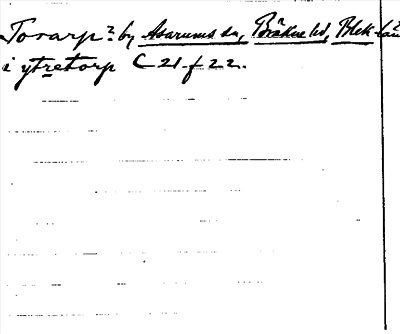 Torarp? by Asarums sn, Bräkne hd, Blek-län
i ytretorp C-21-f 22.